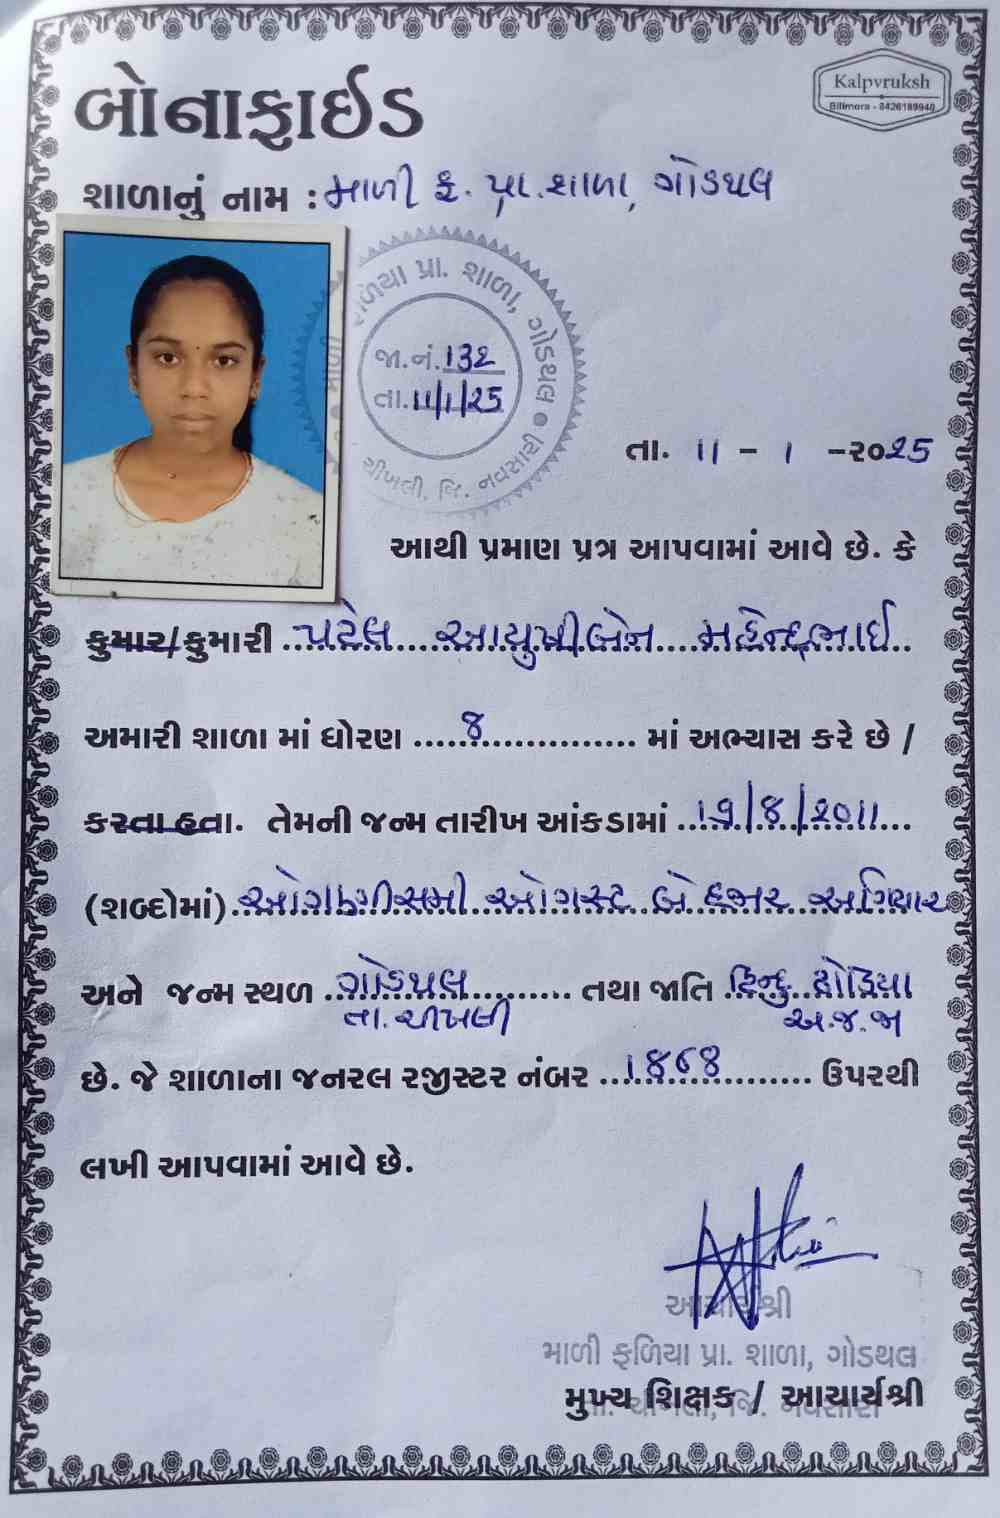 Kalpvruksh
Bilimora - 8426189940
બોનાફાઈડ
શાળાનું નામ : માળી ફ. પ્રા. શાળા, ગોડથલ
ળિયા પ્રા. શાળા, ગોડથલ
માળી
જા.નં. 132
તા. 11/1/25
ચીખલી, જિ. નવસારી
તા. 11 - 1 -૨૦25
આથી પ્રમાણ પત્ર આપવામાં આવે છે. કે
કુમાર/કુમારી પટેલ આયુષીબેન મહેન્દ્રભાઈ
અમારી શાળા માં ધોરણ 8 માં અભ્યાસ કરે છે /
કરતા હતા. તેમની જન્મ તારીખ આંકડામાં 19/8/2011
(શબ્દોમાં) ઓગણીસમી ઓગસ્ટ બે હજાર અગિયાર
અને જન્મ સ્થળ ગોડથલ તથા જાતિ હિન્દુ ઢોડિયા
તા. ચીખલી અ.જ.જા
છે. જે શાળાના જનરલ રજીસ્ટર નંબર 1868 ઉપરથી
લખી આપવામાં આવે છે.
આચાર્યશ્રી
માળી ફળિયા પ્રા. શાળા, ગોડથલ
મુખ્ય શિક્ષક / આચાર્યશ્રી
તા. ચીખલી, જિ. નવસારી